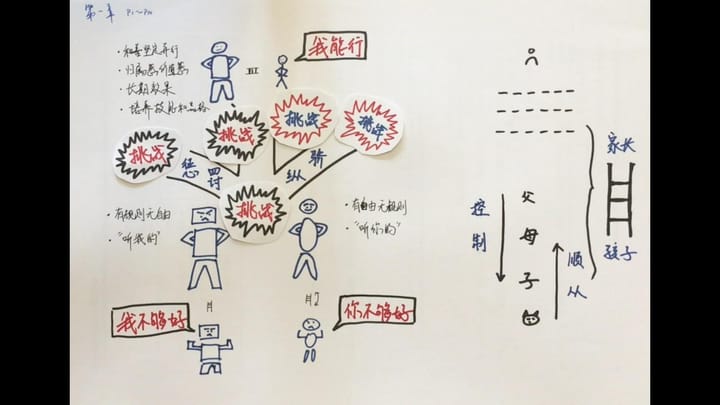 第一章 P1~P20
· 和善坚定并行
· 归属感价值感
· 长期效果
· 培养技能和品格
III
我能行
挑战
挑战
挑战
挑战
惩
骄
纵
挑战
· 有规则无自由
· "听我的"
· 有自由无规则
· "听你的"
我不够好
你不够好
控制
父
母
子
顺从
家长
孩子